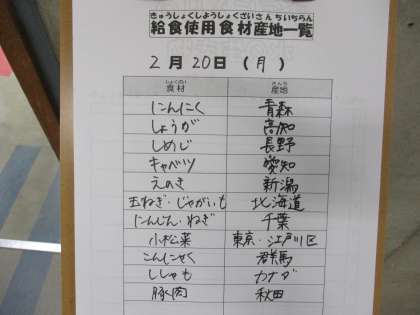 きゅうしょくしようしょくざいさんちいちらん
給食使用食材産地一覧
2月20日(月)
しょくざい さんち
食材 産地
にんにく 青森
しょうが 高知
しめじ 長野
キャベツ 愛知
えのき 新潟
玉ねぎ・じゃがいも 北海道
にんじん・ねぎ 千葉
小松菜 東京・江戸川区
こんにゃく 群馬
ししゃも カナダ
豚肉 秋田